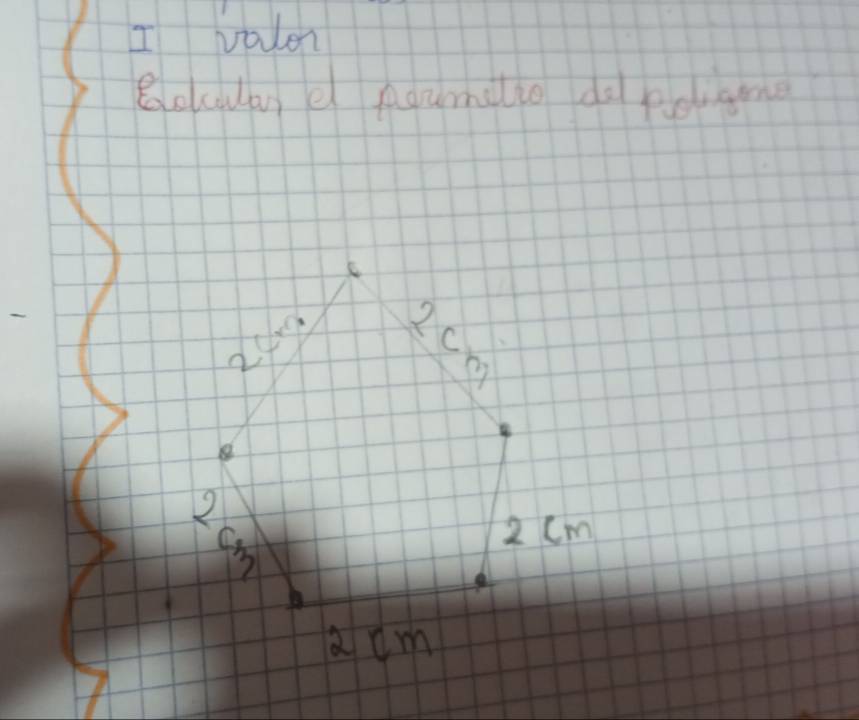 I valor
Calcular el perimetro del poligono
2 cm
2 cm
2 cm
2 cm
2 cm